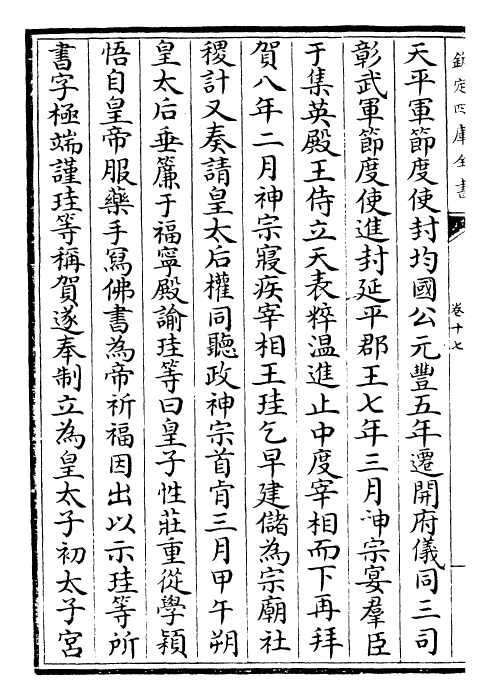 欽定四庫全書
卷十七
天平軍節度使封均國公元豐五年遷開府儀同三司
彰武軍節度使進封延平郡王七年三月神宗宴羣臣
于集英殿王侍立天表粹温進止中度宰相而下再拜
賀八年二月神宗寢疾宰相王珪乞早建儲為宗廟社
稷計又奏請皇太后權同聽政神宗首肯三月甲午朔
皇太后垂簾于福寧殿諭珪等曰皇子性莊重從學穎
悟自皇帝服藥手寫佛書為帝祈福因出以示珪等所
書字極端謹珪等稱賀遂奉制立為皇太子初太子宫